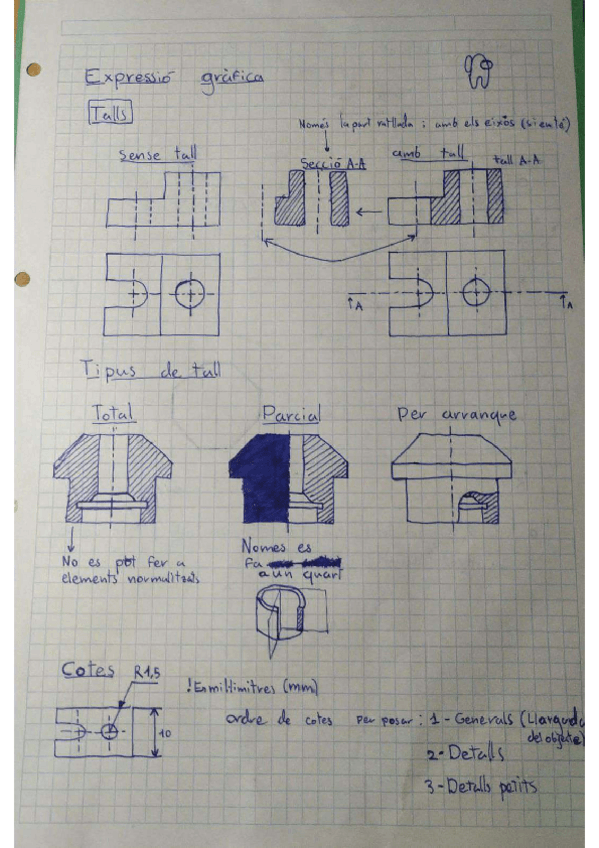 Expressió gràfica
Talls
Només la part ratllada ; amb els eixos (si enté)
sense tall
Secció A-A
amb tall
tall A-A
A
A
Tipus de tall
Total
Parcial
Per arranque
No es pot fer a
elements normalitzats
Nomes es
Fa
a un quart
Cotes
R1,5
! En mil·límitres (mm)
10
ordre de cotes per posar : 1 - Generals (Llargada
del objecte)
2 - Detalls
3 - Detalls petits